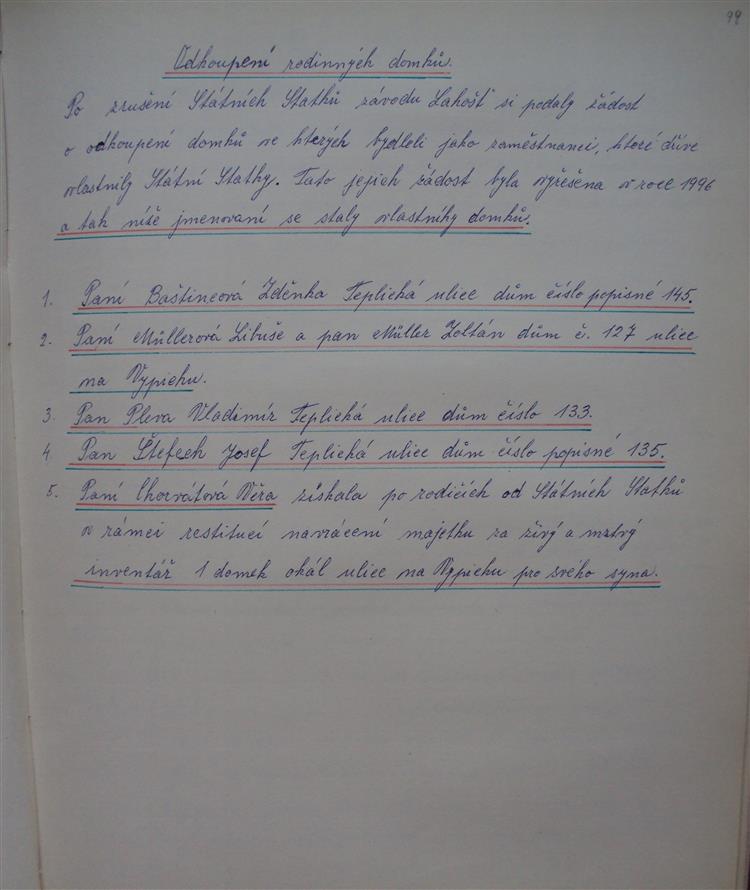 99
Odkoupení rodinných domků.
Po zrušení Státních Statků závodu Lahošť si podaly žádost
o odkoupení domků ve kterých bydleli jako zaměstnanci, které dříve
vlastnily Státní Statky. Tato jejich žádost byla vyřešena v roce 1996
a tak níže jmenovaní se staly vlastníky domků.
1. Paní Baštincová Zděnka Teplická ulice dům číslo popisné 145.
2. Paní Müllerová Libuše a pan Müller Zoltán dům č. 127 ulice
na Výpichu.
3. Pan Pleva Vladimír Teplická ulice dům číslo 133.
4. Pan Štefech Josef Teplická ulice dům číslo popisné 135.
5. Paní Chorvátová Věra získala po rodičích od Státních Statků
v rámci restitucí navrácení majetku za živý a mrtvý
inventář 1 domek okál ulice na Výpichu pro svého syna.